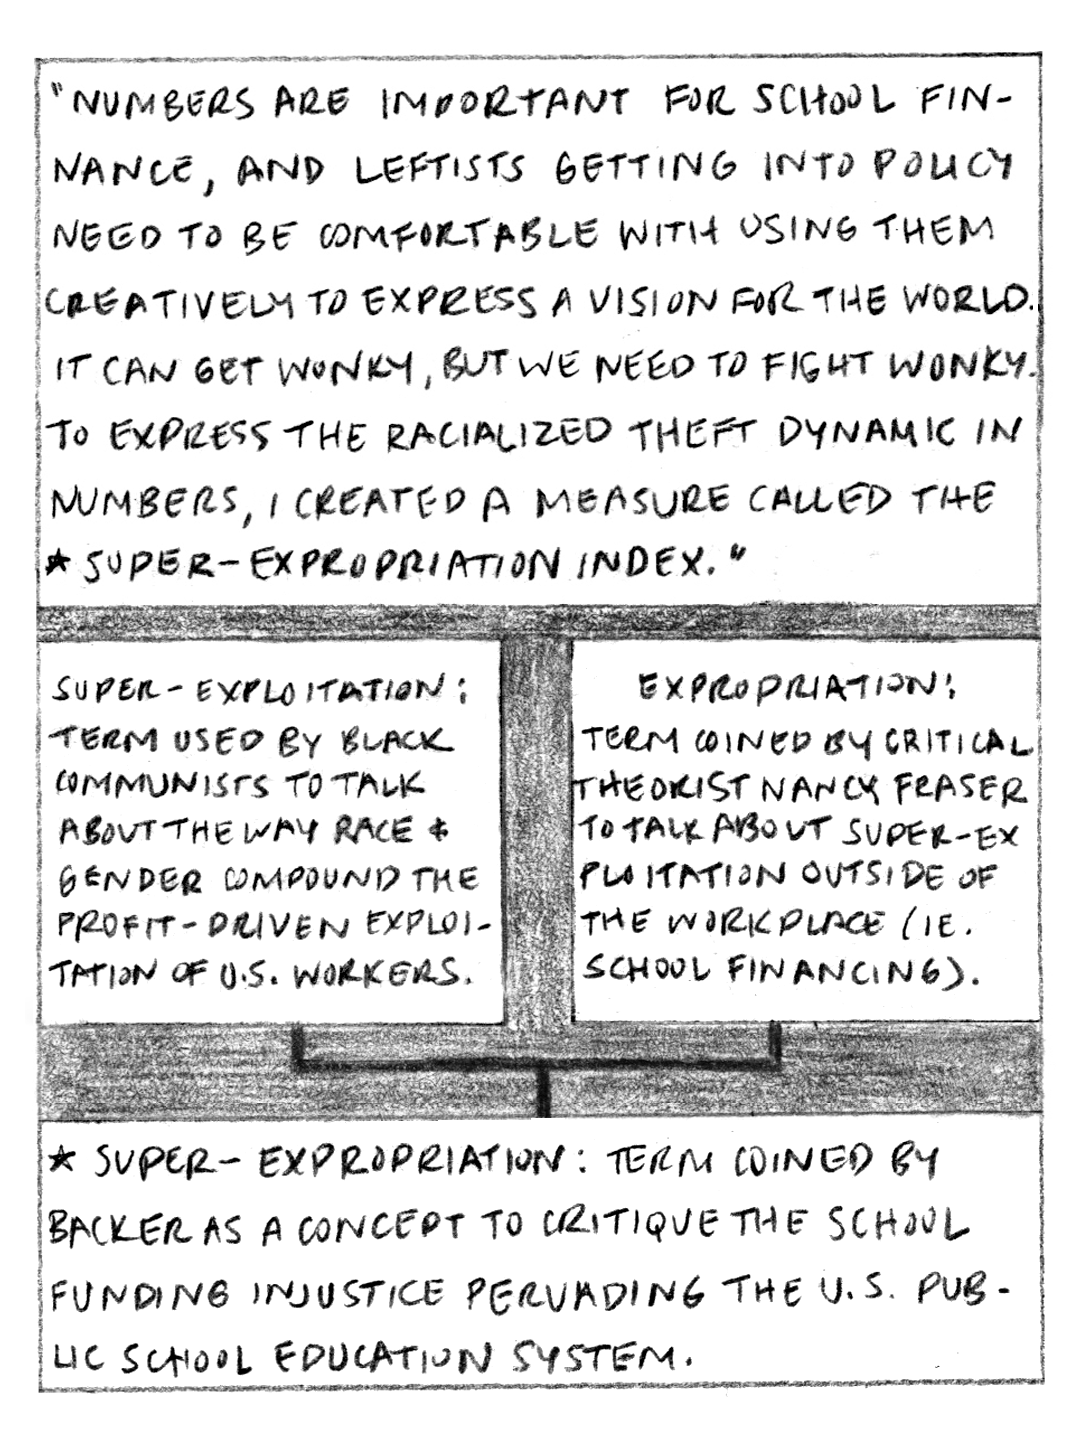 "NUMBERS ARE IMPORTANT FOR SCHOOL FIN-
NANCE, AND LEFTISTS GETTING INTO POLICY
NEED TO BE COMFORTABLE WITH USING THEM
CREATIVELY TO EXPRESS A VISION FOR THE WORLD.
IT CAN GET WONKY, BUT WE NEED TO FIGHT WONKY.
TO EXPRESS THE RACIALIZED THEFT DYNAMIC IN
NUMBERS, I CREATED A MEASURE CALLED THE
★ SUPER-EXPROPRIATION INDEX."
SUPER-EXPLOITATION:
TERM USED BY BLACK
COMMUNISTS TO TALK
ABOUT THE WAY RACE &
GENDER COMPOUND THE
PROFIT-DRIVEN EXPLOI-
TATION OF U.S. WORKERS.
EXPROPRIATION:
TERM COINED BY CRITICAL
THEORIST NANCY FRASER
TO TALK ABOUT SUPER-EX
PLOITATION OUTSIDE OF
THE WORKPLACE (IE.
SCHOOL FINANCING).
★ SUPER-EXPROPRIATION: TERM COINED BY
BACKER AS A CONCEPT TO CRITIQUE THE SCHOOL
FUNDING INJUSTICE PERVADING THE U.S. PUB-
LIC SCHOOL EDUCATION SYSTEM.